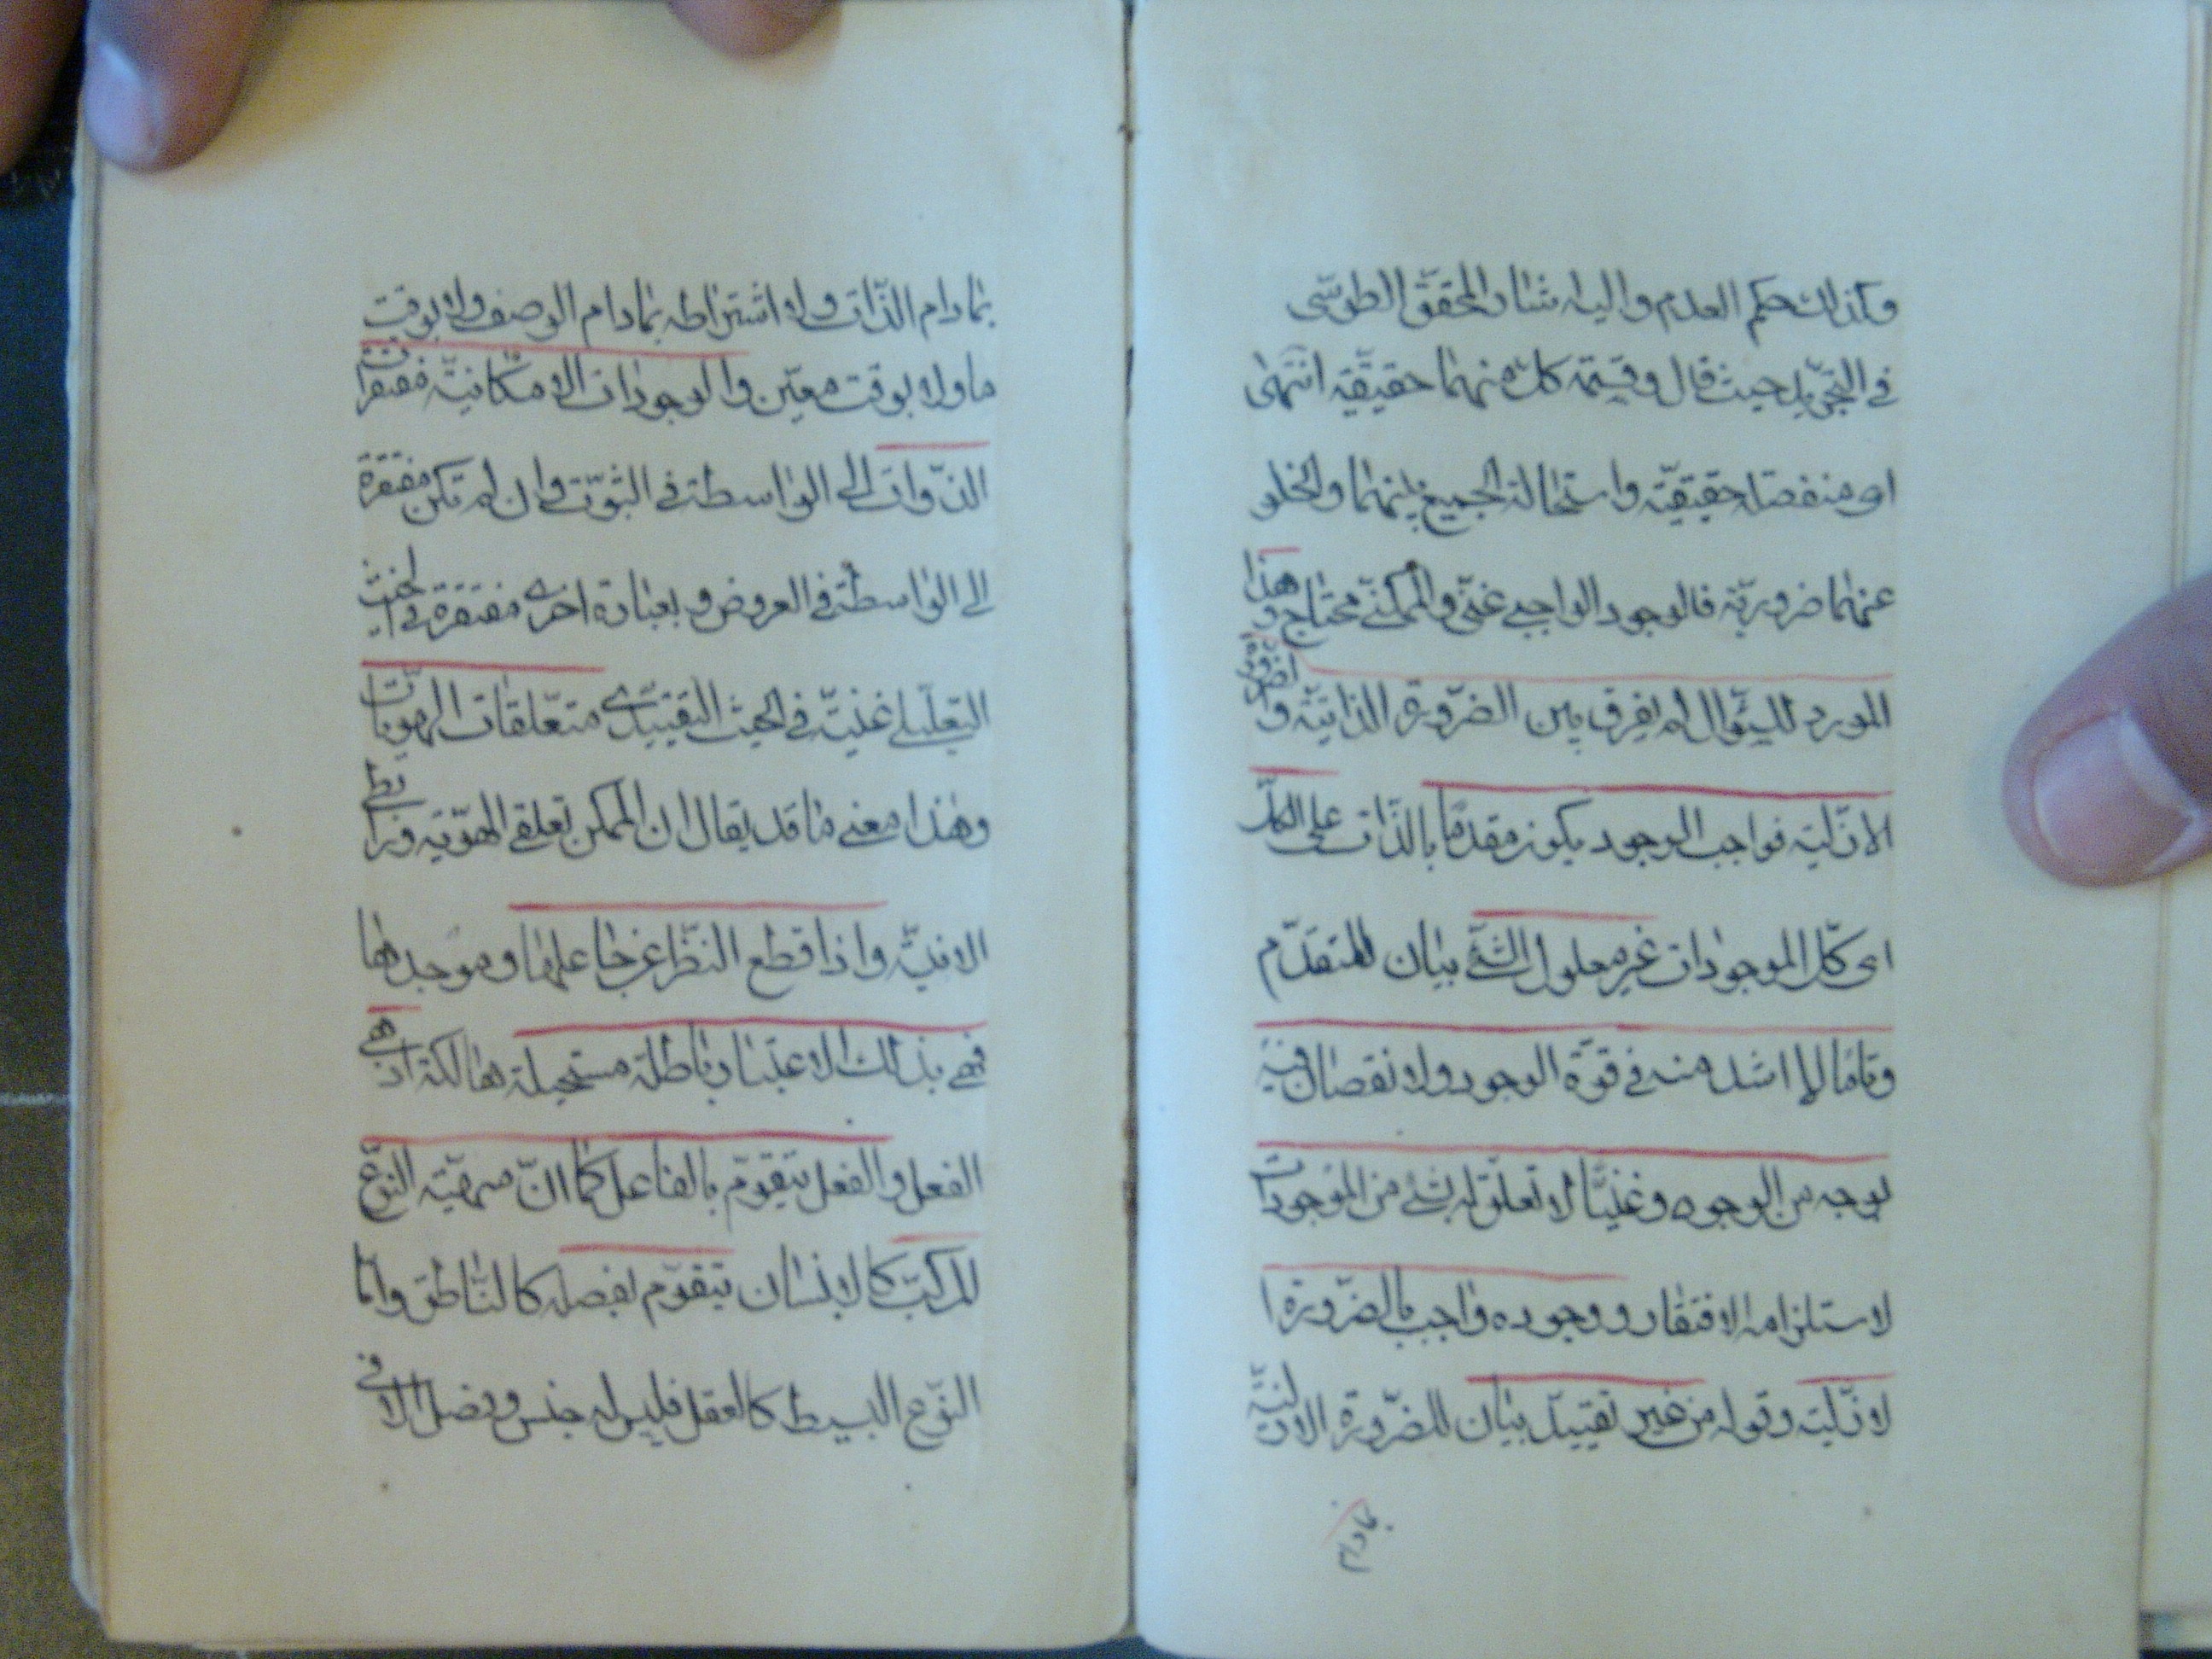 وكذلك حكم العدم واليه اشار المحقق الطوسى
فى التجريد حيث قال وقسمة كل منهما حقيقية انتهى
اى منفصلة حقيقية واستحالة الجمع بينهما والخلو
عنهما ضرورية فالوجود الواجبى غنى والممكنى محتاج وهذا
المورد للسؤال لم يفرق بين الضرورة الذاتية والضرورة
الازلية فواجب الوجود يكون مقدما بالذات على الكل
اى كل الموجودات غير معلول لشئ بيان للمتقدم
وتاما لا اشد منه فى قوة الوجود ولا نقصان فيه
بوجه من الوجوه وغنيا لا تعلق له بشئ من الموجودات
لاستلزامه الافتقار ووجوده واجب بالضرورة ا
لازلية وقوله من غير تقييد بيان للضرورة الازلية
بمادام
بمادام الذات ولا اشتراطه بمادام الوصف ولا بوقت
ما ولا بوقت معين والوجودات الامكانية مفتقرات
الذوات الى الواسطة فى الثبوت وان لم تكن مفتقرة
الى الواسطة فى العروض وبعبارة اخرى مفتقرة فى الحيث
التعليلى غنية فى الحيث التقييدى متعلقات الهويات
وهذا معنى ما قد يقال ان الممكن تعلقى الهوية ورابطى
الانية واذا قطع النظر عن جاعلها وموجدها
فهى بذلك الاعتبار باطلة مستحيلة هالكة اذ هى
الفعل والفعل يتقوم بالفاعل كما ان مهية النوع
المركب كالانسان يتقوم بفصله كالناطق واما
النوع البسيط كالعقل فليس له جنس وفصل الا فى